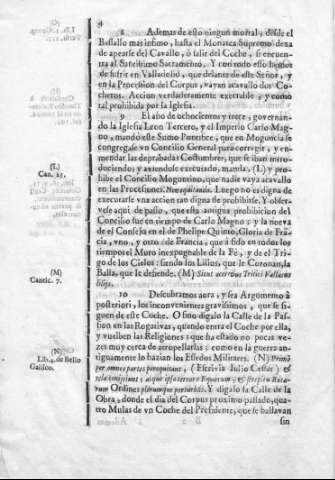 4
8 Ademas de esto ningun mortal, desde el
Basallo mas infimo, hasta el Monarca Supremo dexa
de apearse del Cavallo, ò salir del Coche, si se encuen-
tra al Santissimo Sacramento. Y con todo esto hemos
de sufrir en Valladolid, que delante de este Señor, y
en la Procession del Corpus, vayan acavallo dos Co-
cheros. Accion verdaderamente execrable, y como
tal prohibida por la Iglesia.
9 El año de ochocientos y trece, governan-
do la Iglesia Leon Tercero, y el Imperio Carlo Mag-
no, mandò este Sumo Pontifice, que en Moguncia se
congregase vn Concilio General para corregir, y en-
mendar las deprabadas Costumbres, que se iban intro-
duciendo; y atendido executado, manda, (L) y pro-
hibe el Concilio Moguntino, que nadie vaya acavallo
en las Processiones: Non equitando. Luego no es digna de
executarse vna accion tan digna de prohibirse. Y obser-
vese aqui de passo, que esta antigua prohibicion del
Concilio fue en tiempo de Carlo Magno: y la nueva
de el Consejo en el de Phelipe Quinto, Gloria de Frã-
cia, vno, y otro: de Francia, que à sido en todos los
tiempos el Muro inexpugnable de la Fè, y de el Tri-
go de los Cielos: siendo los Lilios, que le Coronan, la
Balla, que le defiende. (M) Sicut acervus Tritici Vallatus
lilijs.
10 Descubramos aora, y sea Argumento à
posteriori, los inconvenientes gravissimos, que se si-
guen de este Coche. O sino digalo la Calle de la Pas-
sion en las Rogativas, quando entra el Coche por ella,
y vuelben las Religiones: que hà estado no pocas ve-
zes muy cerca de atropellarlas: como en la guerra an-
tiguamente lo hazian los Essedos Militares. (N) Primò
per omnes partes perequitant, (Escrivia Julio Cessar) &
tela conijciunt; atque ipso terrore Equorum, & strepitu Rota-
rum Ordines plerumque perturbant. Y digalo la Calle de la
Obra, donde el dia del Corpus proximo passado, qua-
tro Mulas de vn Coche del Presidente, que se hallavan
sin
(L)
Can. 25.
(M)
Cantic. 7.
(N)
Lib. 4. de Bello
Galico.